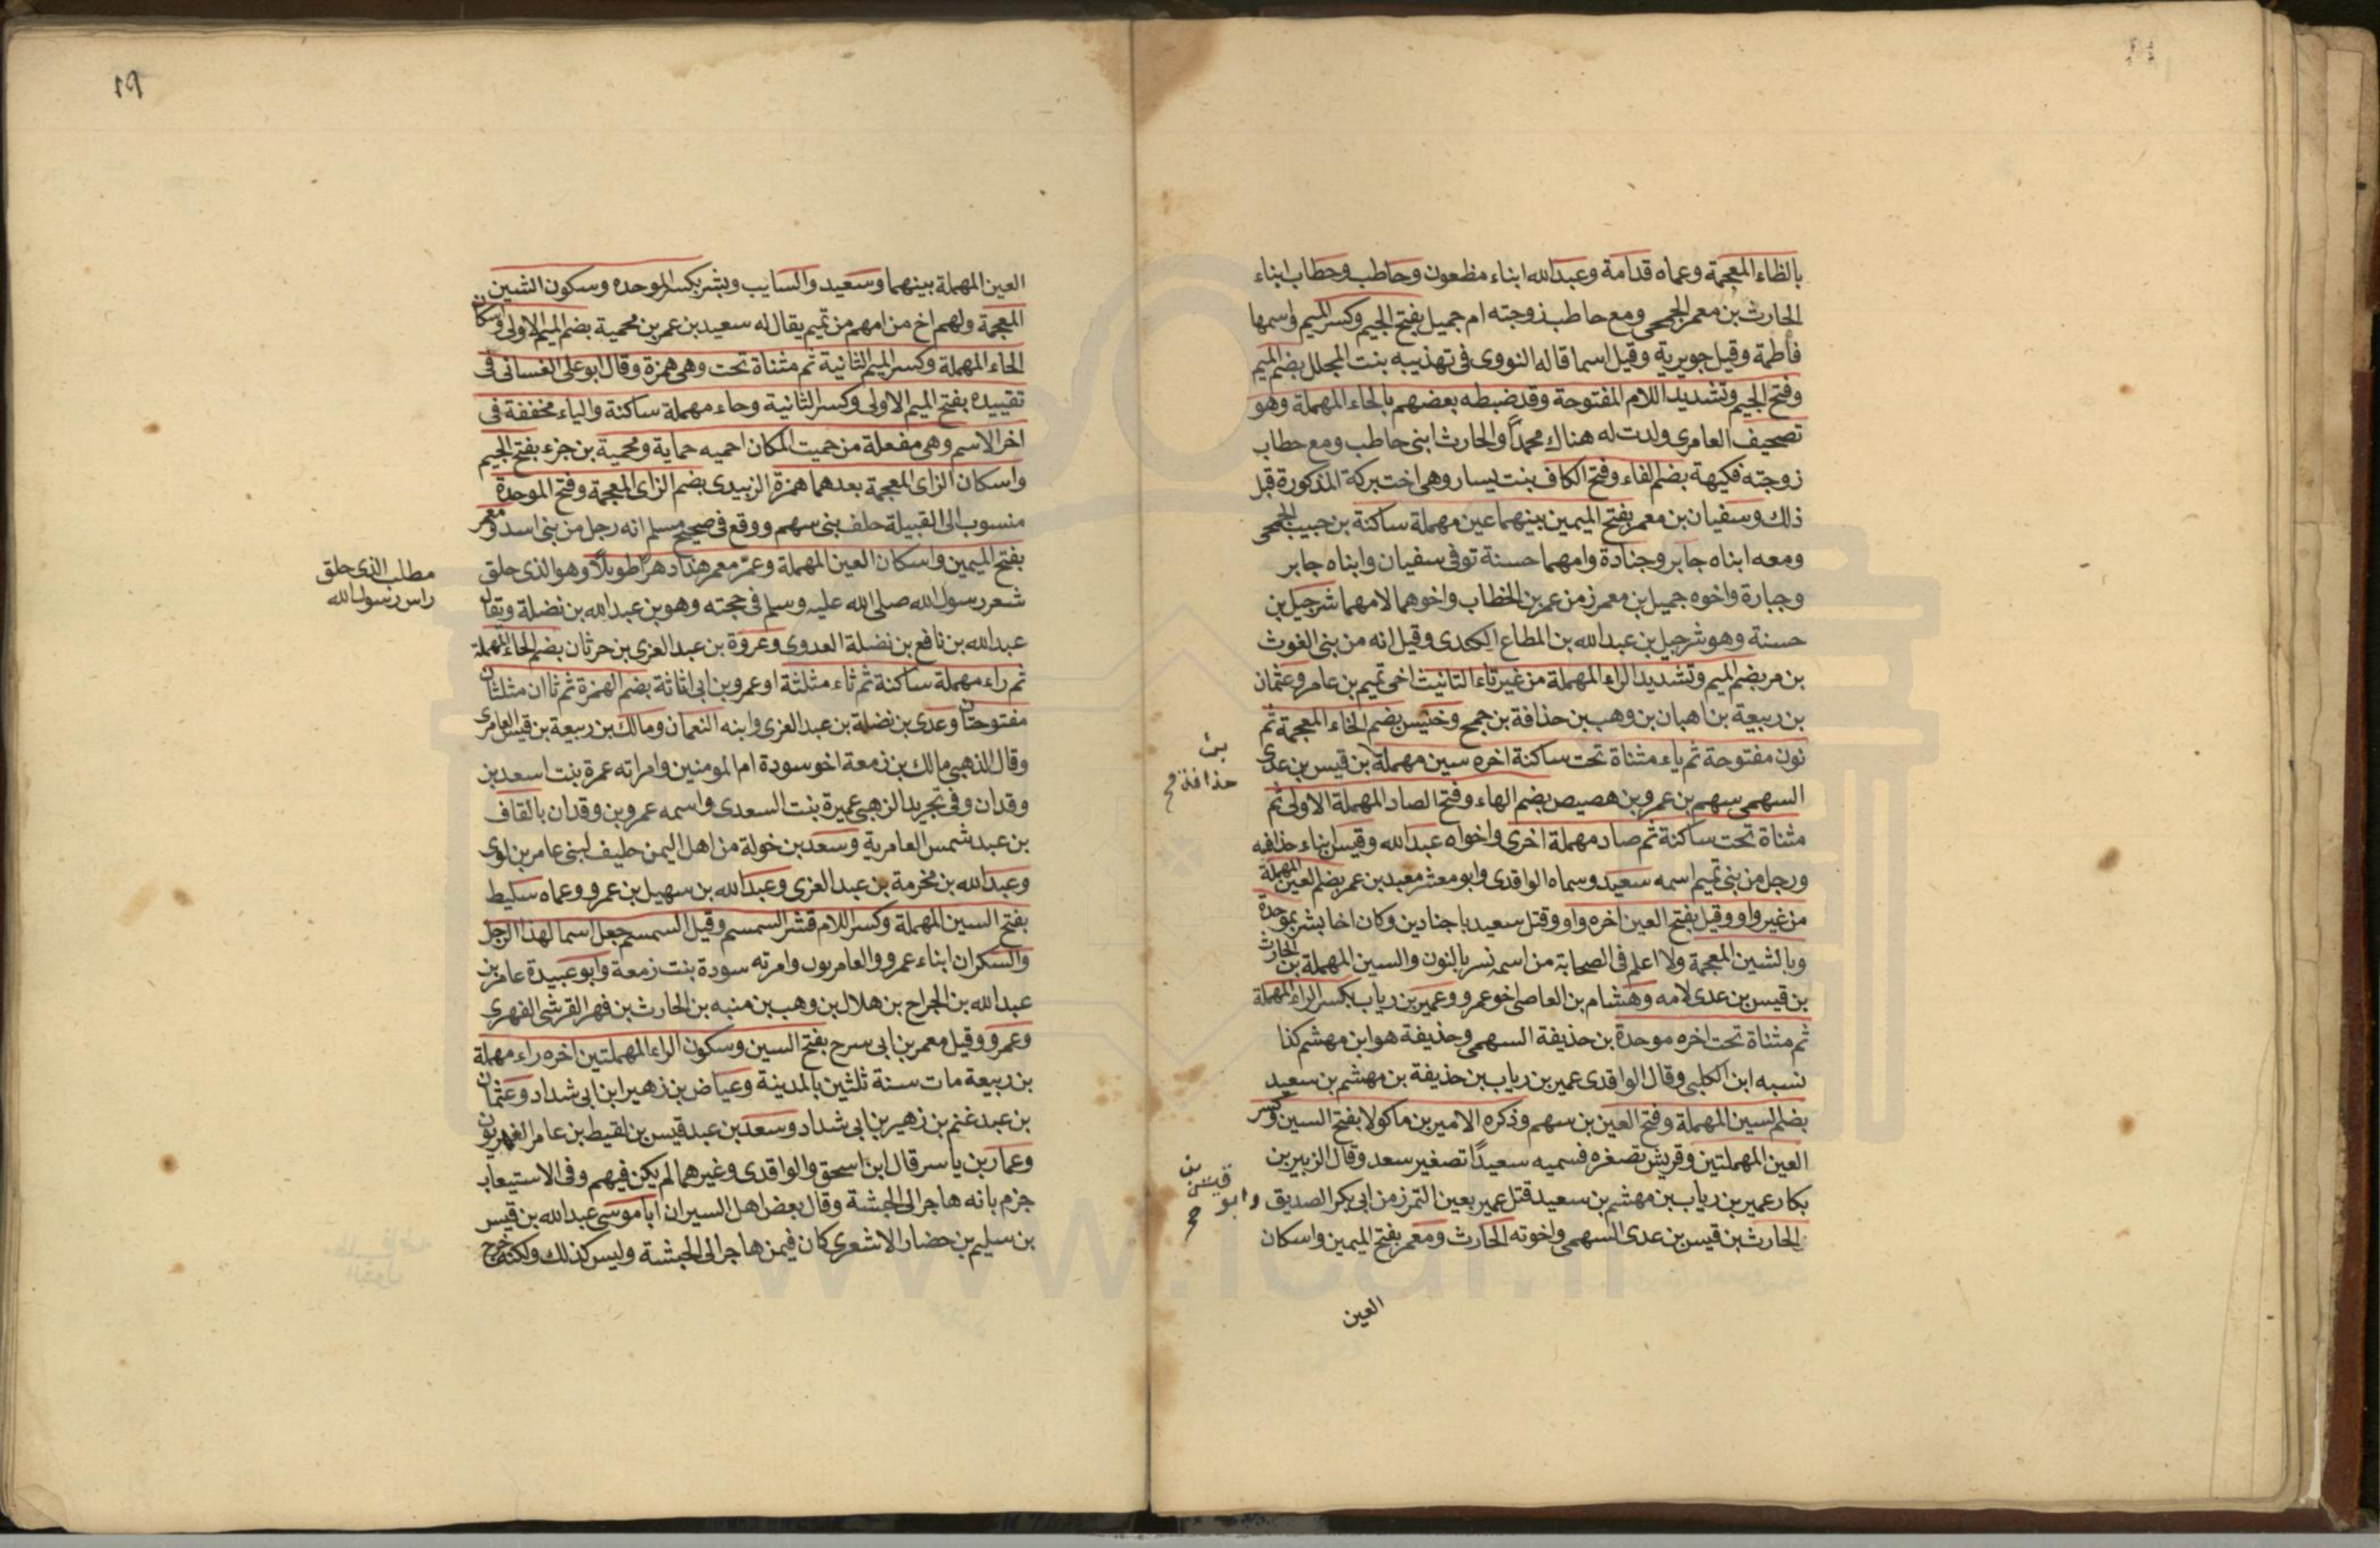 بالظاء المعجمة وعماه قدامة وعبدالله ابناء مظعون وحاطب وحطاب ابناء
الحارث بن معمر الجمحى ومع حاطب زوجته ام جميل بفتح الجيم وكسر الميم واسمها
فاطمة وقيل جويرية وقيل اسما قاله النووى فى تهذيبه بنت المجلل بضم الميم
وفتح الجيم وتشديد اللام المفتوحة وقد ضبطه بعضهم بالحاء المهملة وهو
تصحيف العامرى ولدت له هناك محمدًا والحارث ابنى حاطب ومع حطاب
زوجته فكيهة بضم الفاء وفتح الكاف بنت يسار وهى اخت بركة المذكورة قبل
ذلك وسفيان بن معمر بفتح الميمين بينهما عين مهملة ساكنة بن حبيب الجمحى
ومعه ابناه جابر وجنادة وامهما حسنة توفى سفيان وابناه جابر
وجبارة واخوه جميل بن معمر زمن عمر بن الخطاب واخوهما لامهما شرحبيل بن
حسنة وهو شرحبيل بن عبدالله بن المطاع الكندى وقيل انه من بنى الغوث
بن مر بضم الميم وتشديد الراء المهملة من غير تاء التانيث اخى تميم بن عامر وعثمان
بن ربيعة بن اهبان بن وهب بن حذافة بن جمح وخنيس بضم الخاء المعجمة ثم
نون مفتوحة ثم ياء مثناة تحت ساكنة اخره سين مهملة بن قيس بن عدى
بن
حذافة
السهمى سهم بن عمرو بن هصيص بضم الهاء وفتح الصاد المهملة الاولى ثم
مثناة تحت ساكنة ثم صاد مهملة اخرى واخواه عبدالله وقيس ابناء حذافه
ورجل من بنى تميم اسمه سعيد وسماه الواقدى وابو معشر معبد بن عمر بضم العين المهملة
من غير واو وقيل بفتح العين اخره واو وقتل سعيد باجنادين وكان اخا بشر بموحدة
وبالشين المعجمة ولا اعلم فى الصحابة من اسمه نسر بالنون والسين المهملة بن الحارث
بن قيس بن عدى لامه وهشام بن العاصى اخو عمرو وعمير بن رياب بكسر الراء المهملة
ثم مثناة تحت اخره موحدة بن حذيفة السهمى وحذيفة هو ابن مهشم كذا
نسبه ابن الكلبى وقال الواقدى عمير بن رياب بن حذيفة بن مهشم بن سعيد
بضم السين المهملة وفتح العين بن سهم وذكره الامير بن ماكولا بفتح السين وكسر
العين المهملتين وقريش تصغره فسميه سعيدًا تصغير سعد وقال الزبير بن
بكار عمير بن رياب بن مهشم بن سعيد قتل عمير بعين التمر زمن ابى بكر الصديق وابو
قيس بن
الحارث بن قيس بن عدى السهمى واخوته الحارث ومعمر بفتح الميمين واسكان
العين
العين المهملة بينهما وسعيد والسايب وبشر بكسر الموحده وسكون الشين
المعجمة ولهم اخ من امهم من تميم يقال له سعيد بن عمر بن محمية بضم الميم الاولى واسكان
الحاء المهملة وكسر الميم الثانية ثم مثناة تحت وهى همزة وقال ابو على الغسانى فى
تقييده بفتح الميم الاولى وكسر الثانية وحاء مهملة ساكنة والياء مخففة فى
اخر الاسم وهى مفعلة من حميت المكان احميه حماية ومحمية بن جزء بفتح الجيم
واسكان الزاى المعجمة بعدهما همزة الزبيدى بضم الزاى المعجمة وفتح الموحدة
منسوب الى القبيلة حلف بنى سهم ووقع فى صحيح مسلم انه رجل من بنى اسد ومعمر
بفتح الميمين واسكان العين المهملة وعمّر معمر هذا دهرًا طويلاً وهو الذى حلق
مطلب الذى حلق
راس رسول الله
شعر رسول الله صلى الله عليه وسلم فى حجته وهو بن عبدالله بن نضلة ويقال
عبدالله بن نافع بن نضلة العدوى وعروة بن عبد العزى بن حرثان بضم الحاء المهملة
ثم راء مهملة ساكنة ثم ثاء مثلثة او عمرو بن ابى اثاثة بضم الهمزة ثم ثاان مثلثان
مفتوحتان وعدى بن نضلة بن عبد العزى وابنه النعمان ومالك بن ربيعة بن قيس العامرى
وقال الذهبى مالك بن زمعة اخو سودة ام المومنين وامراته عمرة بنت اسعد بن
وقدان وفى تجريد الزهبى عميرة بنت السعدى واسمه عمرو بن وقدان بالقاف
بن عبد شمس العامرية وسعد بن خولة من اهل اليمن حليف لبنى عامر بن لوى
وعبدالله بن مخرمة بن عبد العزى وعبدالله بن سهيل بن عمرو وعماه سليط
بفتح السين المهملة وكسر اللام قشر السمسم وقيل السمسم جعل اسما لهذا الرجل
والسكران ابناء عمرو والعامريون وامرته سودة بنت زمعة وابو عبيدة عامر بن
عبدالله بن الجراح بن هلال بن وهب بن منبه بن الحارث بن فهر القرشى الفهرى
وعمرو وقيل معمر بن ابى سرح بفتح السين وسكون الراء المهملتين اخره راء مهملة
بن ربيعة مات سنة ثلثين بالمدينة وعياض بن زهير ابن ابى شداد وعثمان
بن عبد غنم بن زهير بن ابى شداد وسعد بن عبد قيس بن لقيط بن عامر الفهريون
وعمار بن ياسر قال ابن اسحق والواقدى وغيرهما لم يكن فيهم وفى الاستيعاب
جزم بانه هاجر الى الحبشة وقال بعض اهل السير ان ابا موسى عبدالله بن قيس
بن سليم بن حضار الاشعرى كان فيمن هاجر الى الحبشة وليس كذلك ولكنه خرج